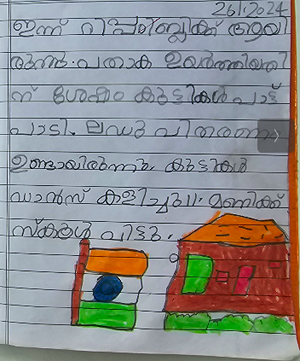 26/1/2024
ഇന്ന് റിപ്പബ്ലിക്ക് ആയി
രുന്നു. പതാക ഉയർത്തിയതി
ന് ശേഷം കുട്ടികൾ പാട്ട്
പാടി. ലഡു വിതരണം
ഉണ്ടായിരുന്നു. കുട്ടികൾ
ഡാൻസ് കളിച്ചു. 11 മണിക്ക്
സ്കൂൾ വിട്ടു.